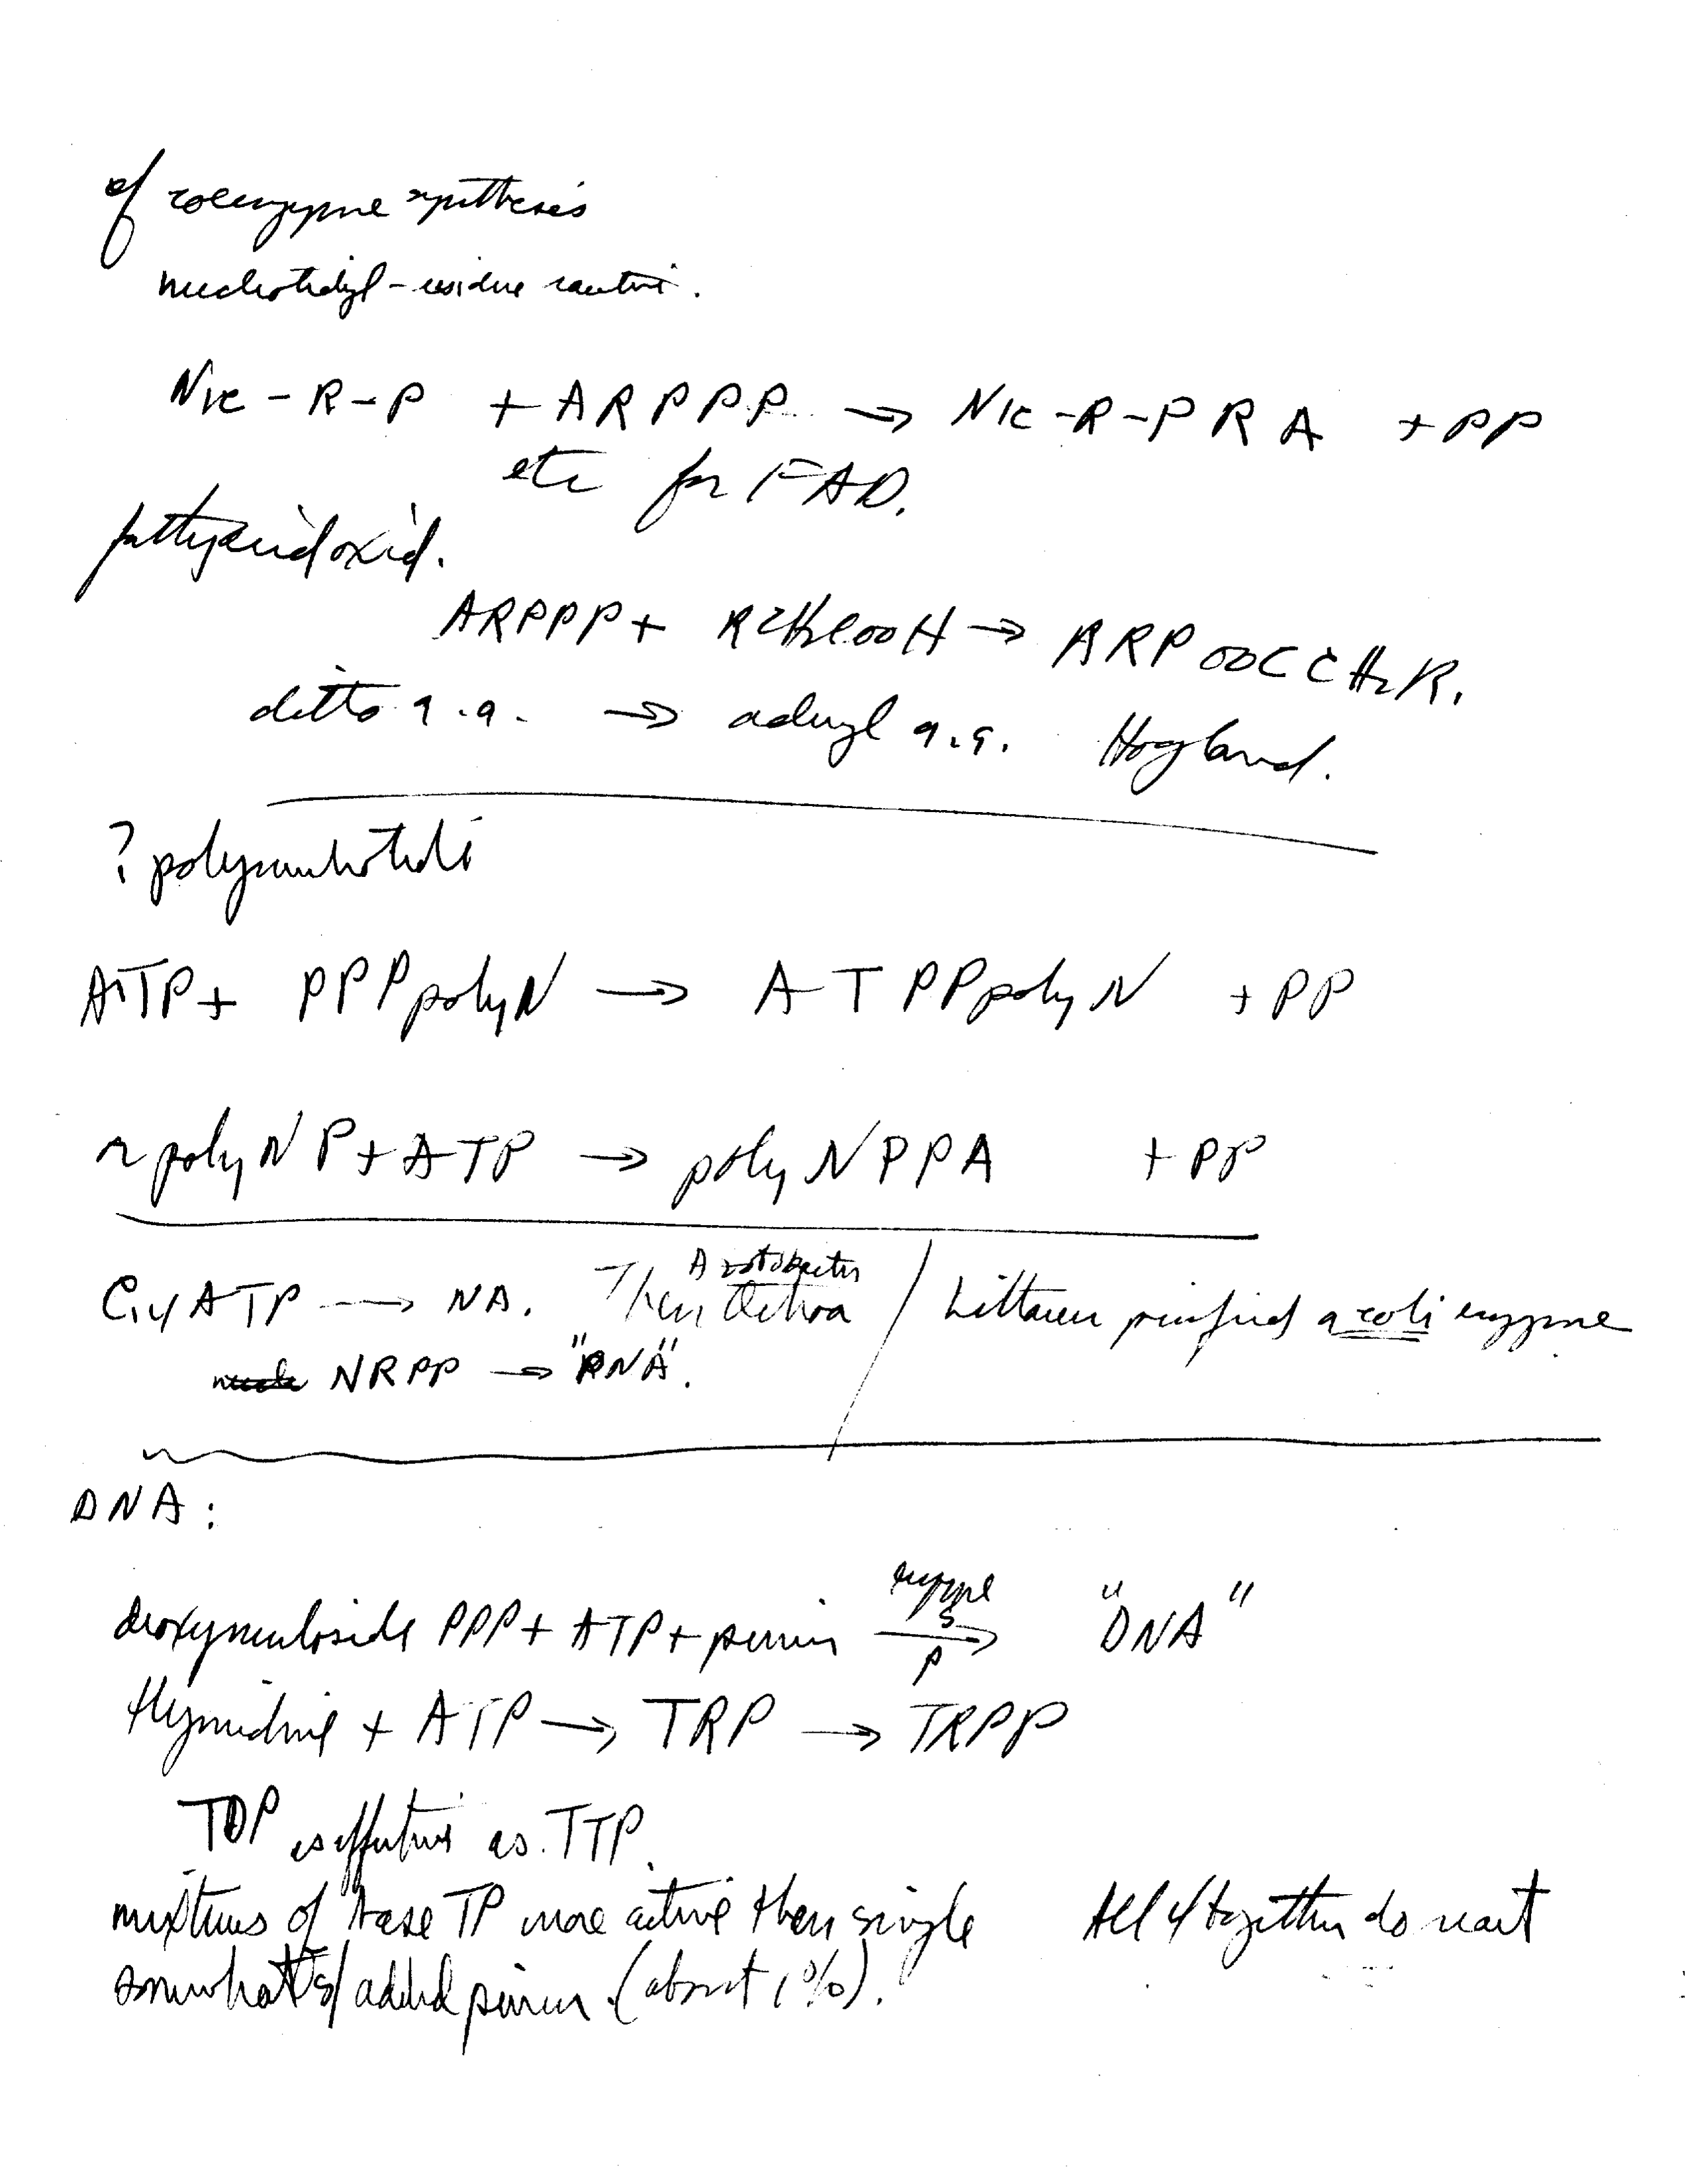 cf coenzyme synthesis
nucleotidyl-residue
Nic-R-P + ARPPP → Nic-R-PRA + PP
etc for FAD.
fatty acid oxid.
ARPPP + RCH2COOH → ARPOOCCH2R.
ditto a.a. → adenyl a.a. Hogland.
? polynucleotide
ATP + PPPpolyN → ATPPpolyN + PP
polyNP + ATP → polyNPPA + PP
C14ATP → NA. Then Ochoa / Littauer purified a coli enzyme
Azotobacter
NRPP → "RNA".
DNA:
deoxynucleoside PPP + ATP + primer → "DNA"
enzyme
S
P
thymidine + ATP → TRP → TRPP
TDP as effective as TTP.
mixtures of base TP more active then single All 4 together do react
somewhat added primer (about 1%).